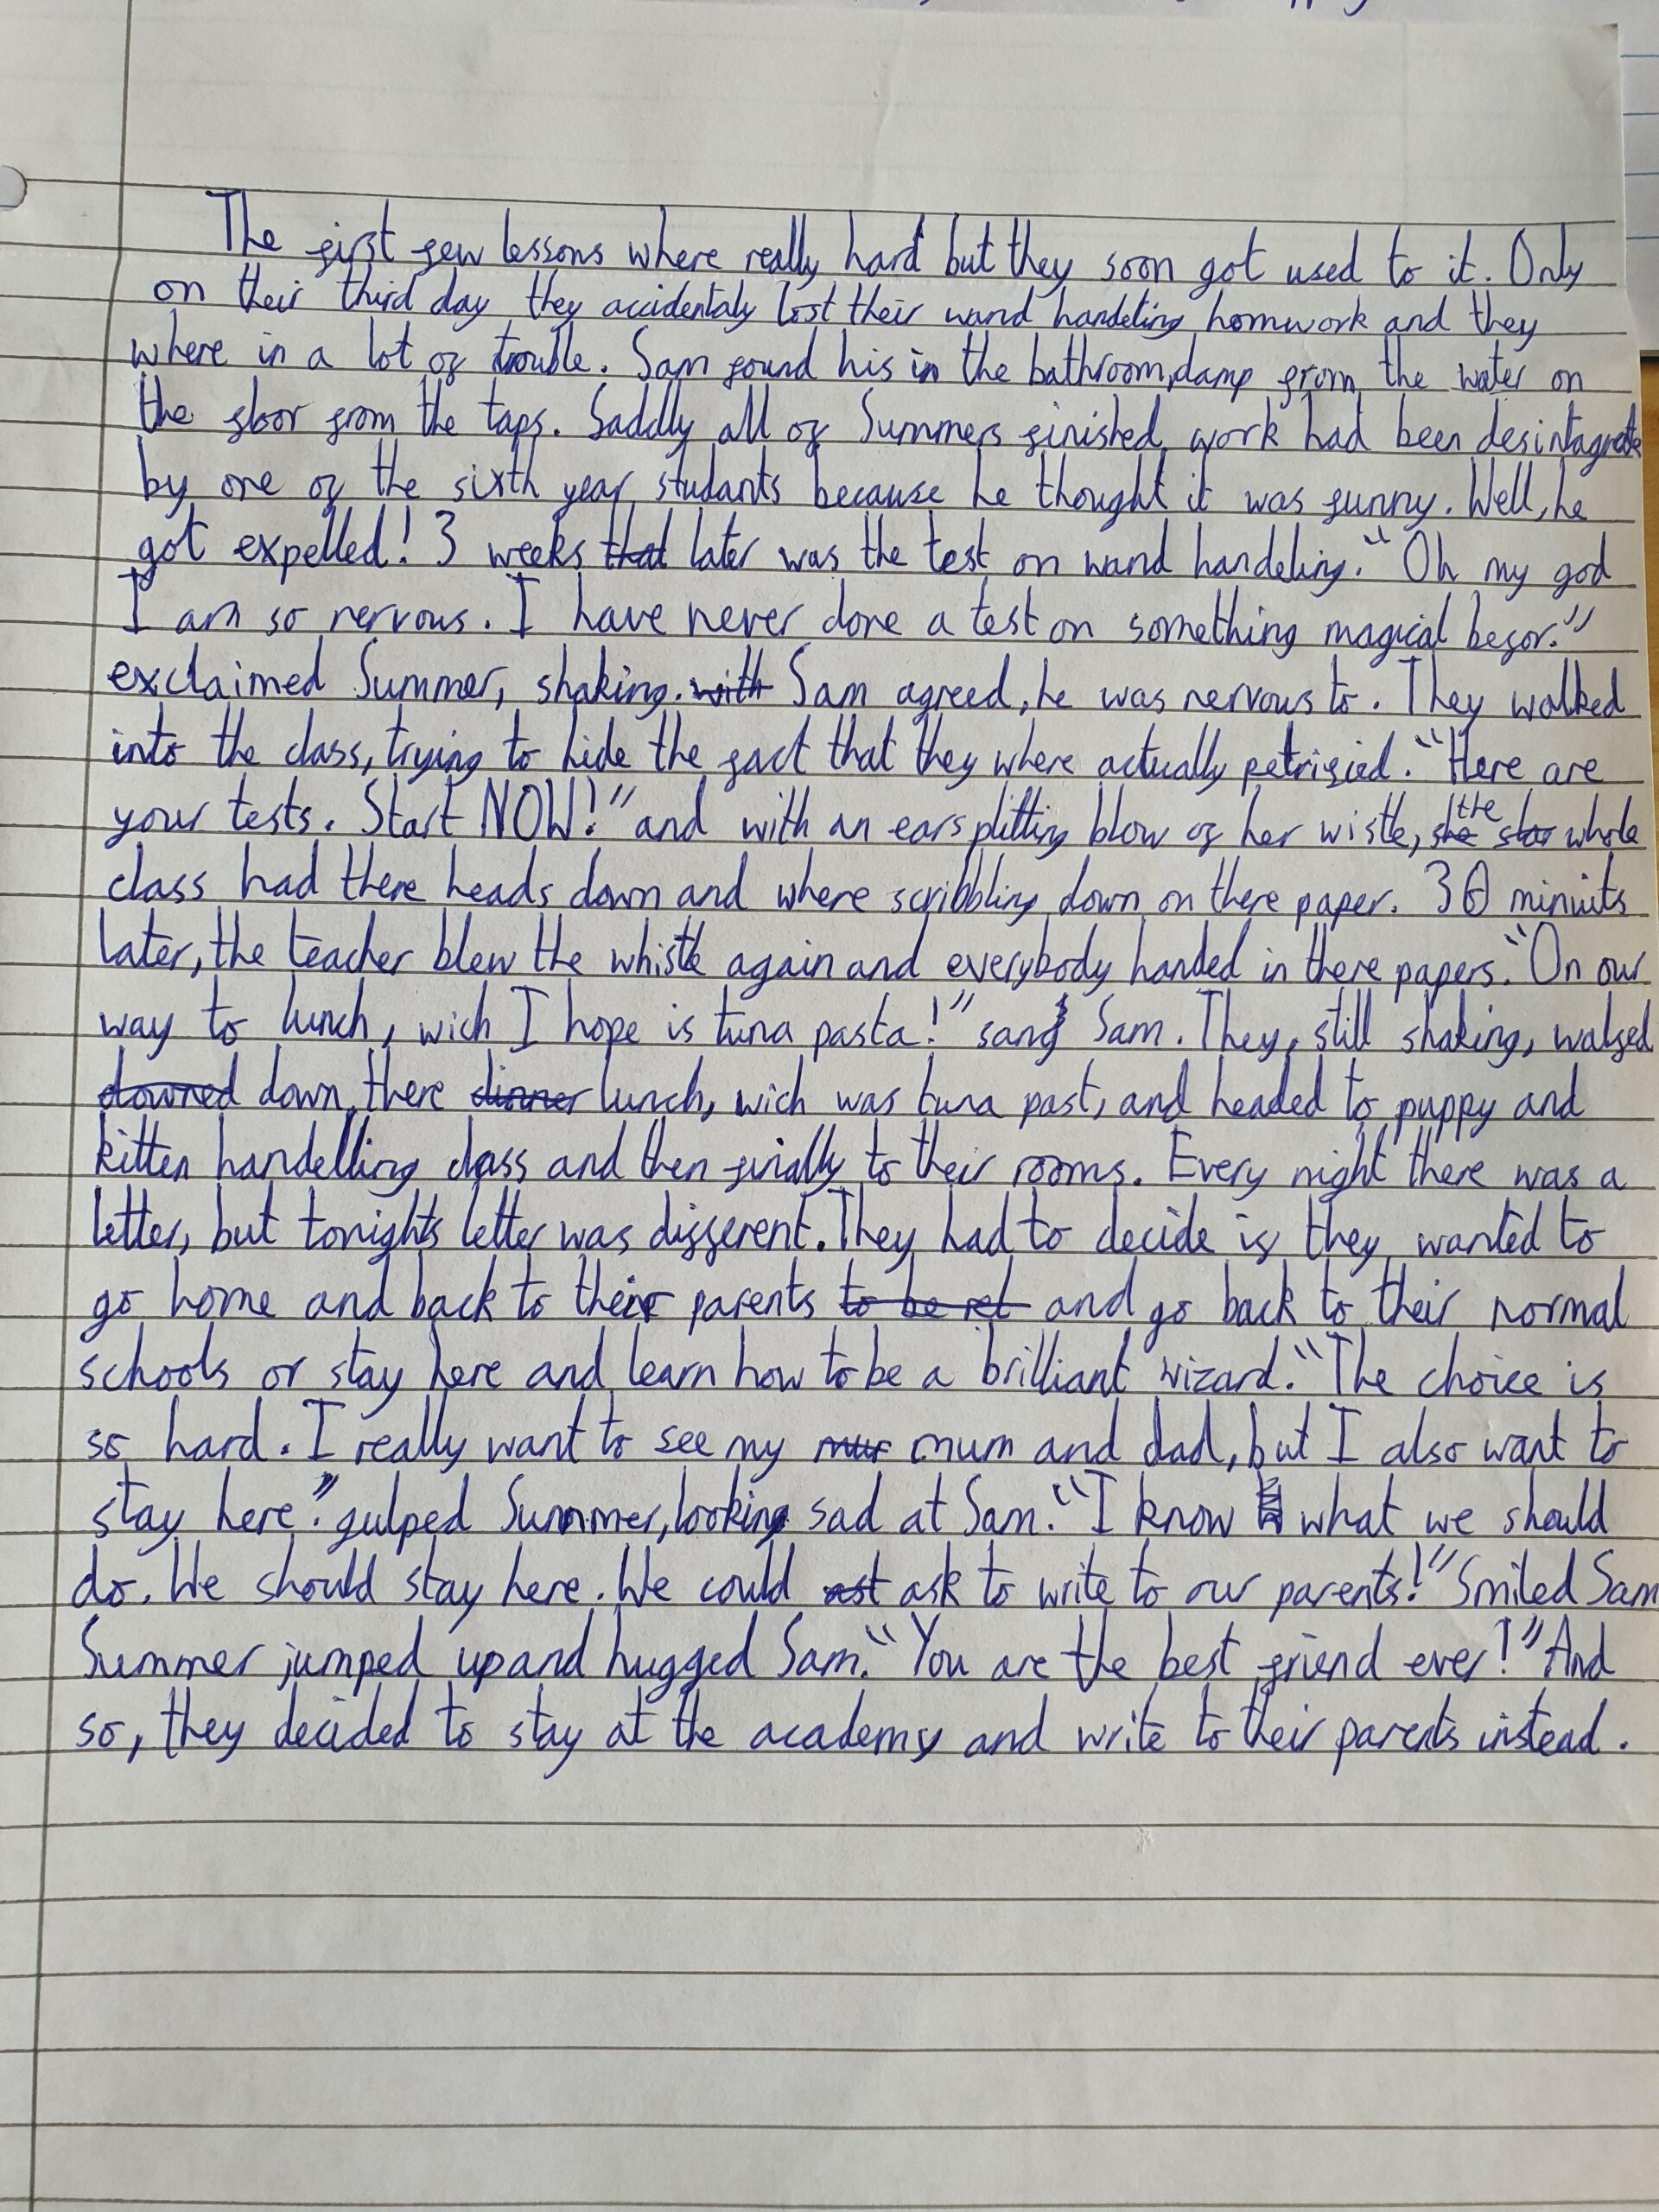 The first few lessons where really hard but they soon got used to it. Only
on their third day they accidentaly lost their wand handeling homwork and they
where in a lot of trouble. Sam found his in the bathroom, damp from the water on
the floor from the taps. Saddly all of Summers finished work had been desintagrate
by one of the sixth year studants because he thought it was funny. Well, he
got expelled! 3 weeks that later was the test on wand handeling. "Oh my god
I am so nervous. I have never done a test on something magical befor."
exclaimed Summer, shaking. with Sam agreed, he was nervous to. They walked
into the class, trying to hide the fact that they where actually petrified. "Here are
your tests. Start NOW!" and with an earsplitting blow of her wistle, she the whole
class had there heads down and where scribbling down on there paper. 30 minuits
later, the teacher blew the whistle again and everybody handed in there papers. "On our
way to lunch, wich I hope is tuna pasta!" sang Sam. They, still shaking, walfed
downed down there dinner lunch, wich was tuna past, and headed to puppy and
kitten handelling class and then finally to their rooms. Every night there was a
letter, but tonights letter was different. They had to decide if they wanted to
go home and back to their parents to be and go back to their normal
schools or stay here and learn how to be a brilliant wizard. "The choice is
so hard. I really want to see my mum and dad, but I also want to
stay here." gulped Summer, looking sad at Sam. "I know what we should
do. We should stay here. We could ask to write to our parents!" Smiled Sam
Summer jumped up and hugged Sam. "You are the best friend ever!" And
so, they decided to stay at the academy and write to their parents instead.